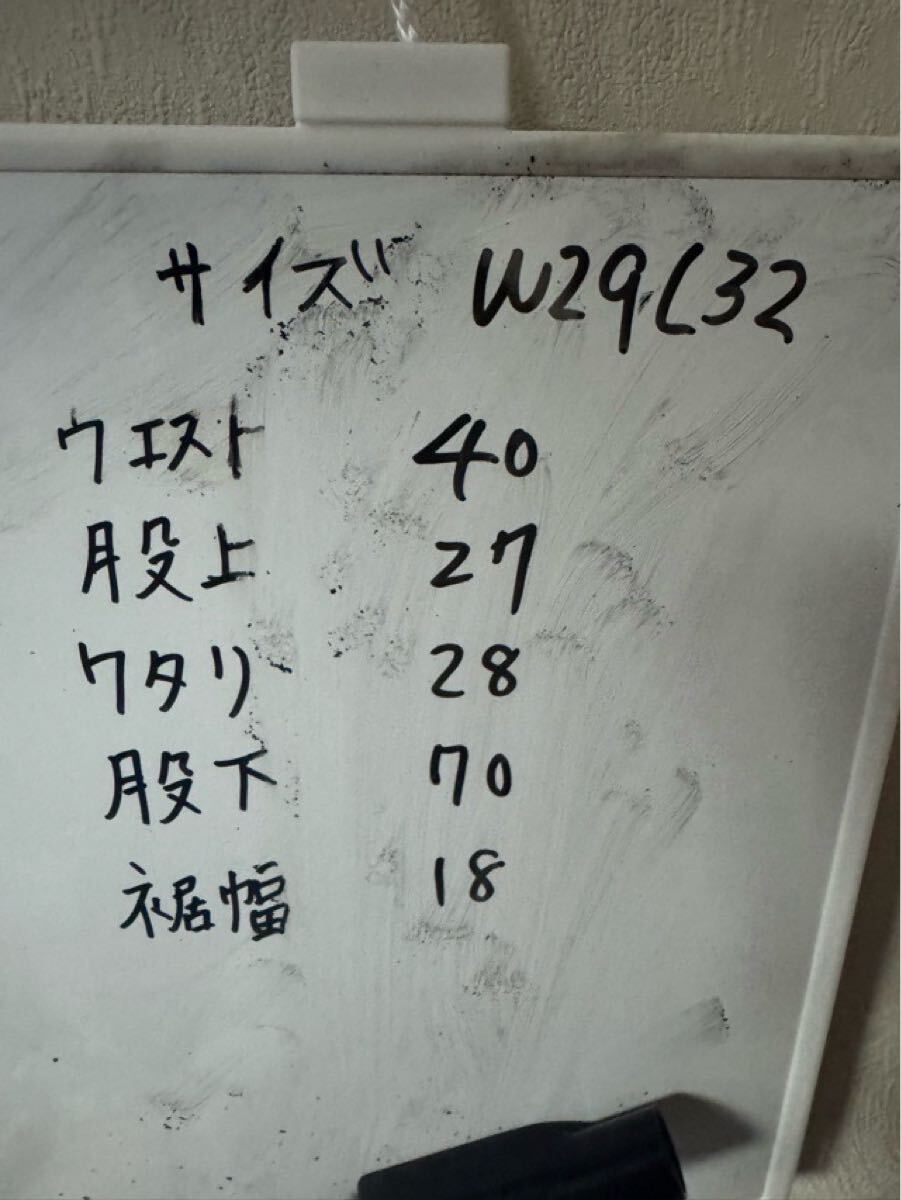 サイズ W29L32
ウエスト 40
股上 27
ワタリ 28
股下 70
裾幅 18